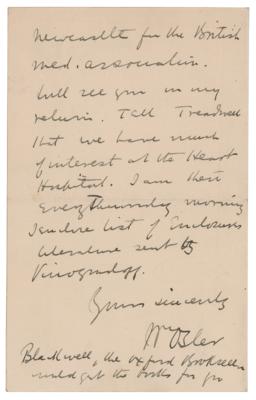 Newcastle for the British
Med. Association.
Will see you on my
return. Tell Treadwell
that we have much
of interest at the Heart
Hospital. I am there
every Thursday morning
I enclose list of Enclosures
literature sent by
Vinogradoff.
Yours sincerely
Wm Osler
Blackwell, the Oxford Bookseller
would get the books for you